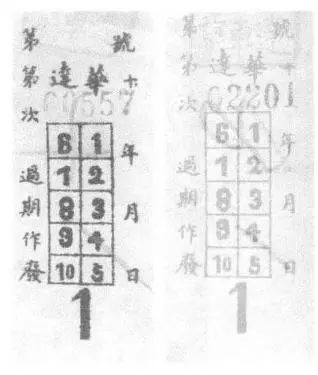 第 號
第 達 華 十
次
6 1 年
1 2
過 8 3 月
期 9 4
作 10 5 日
發
1
第 號
第 達 華 十
次 62201
6 1 年
1 2
過 8 3 月
期 9 4
作 10 5 日
發
1